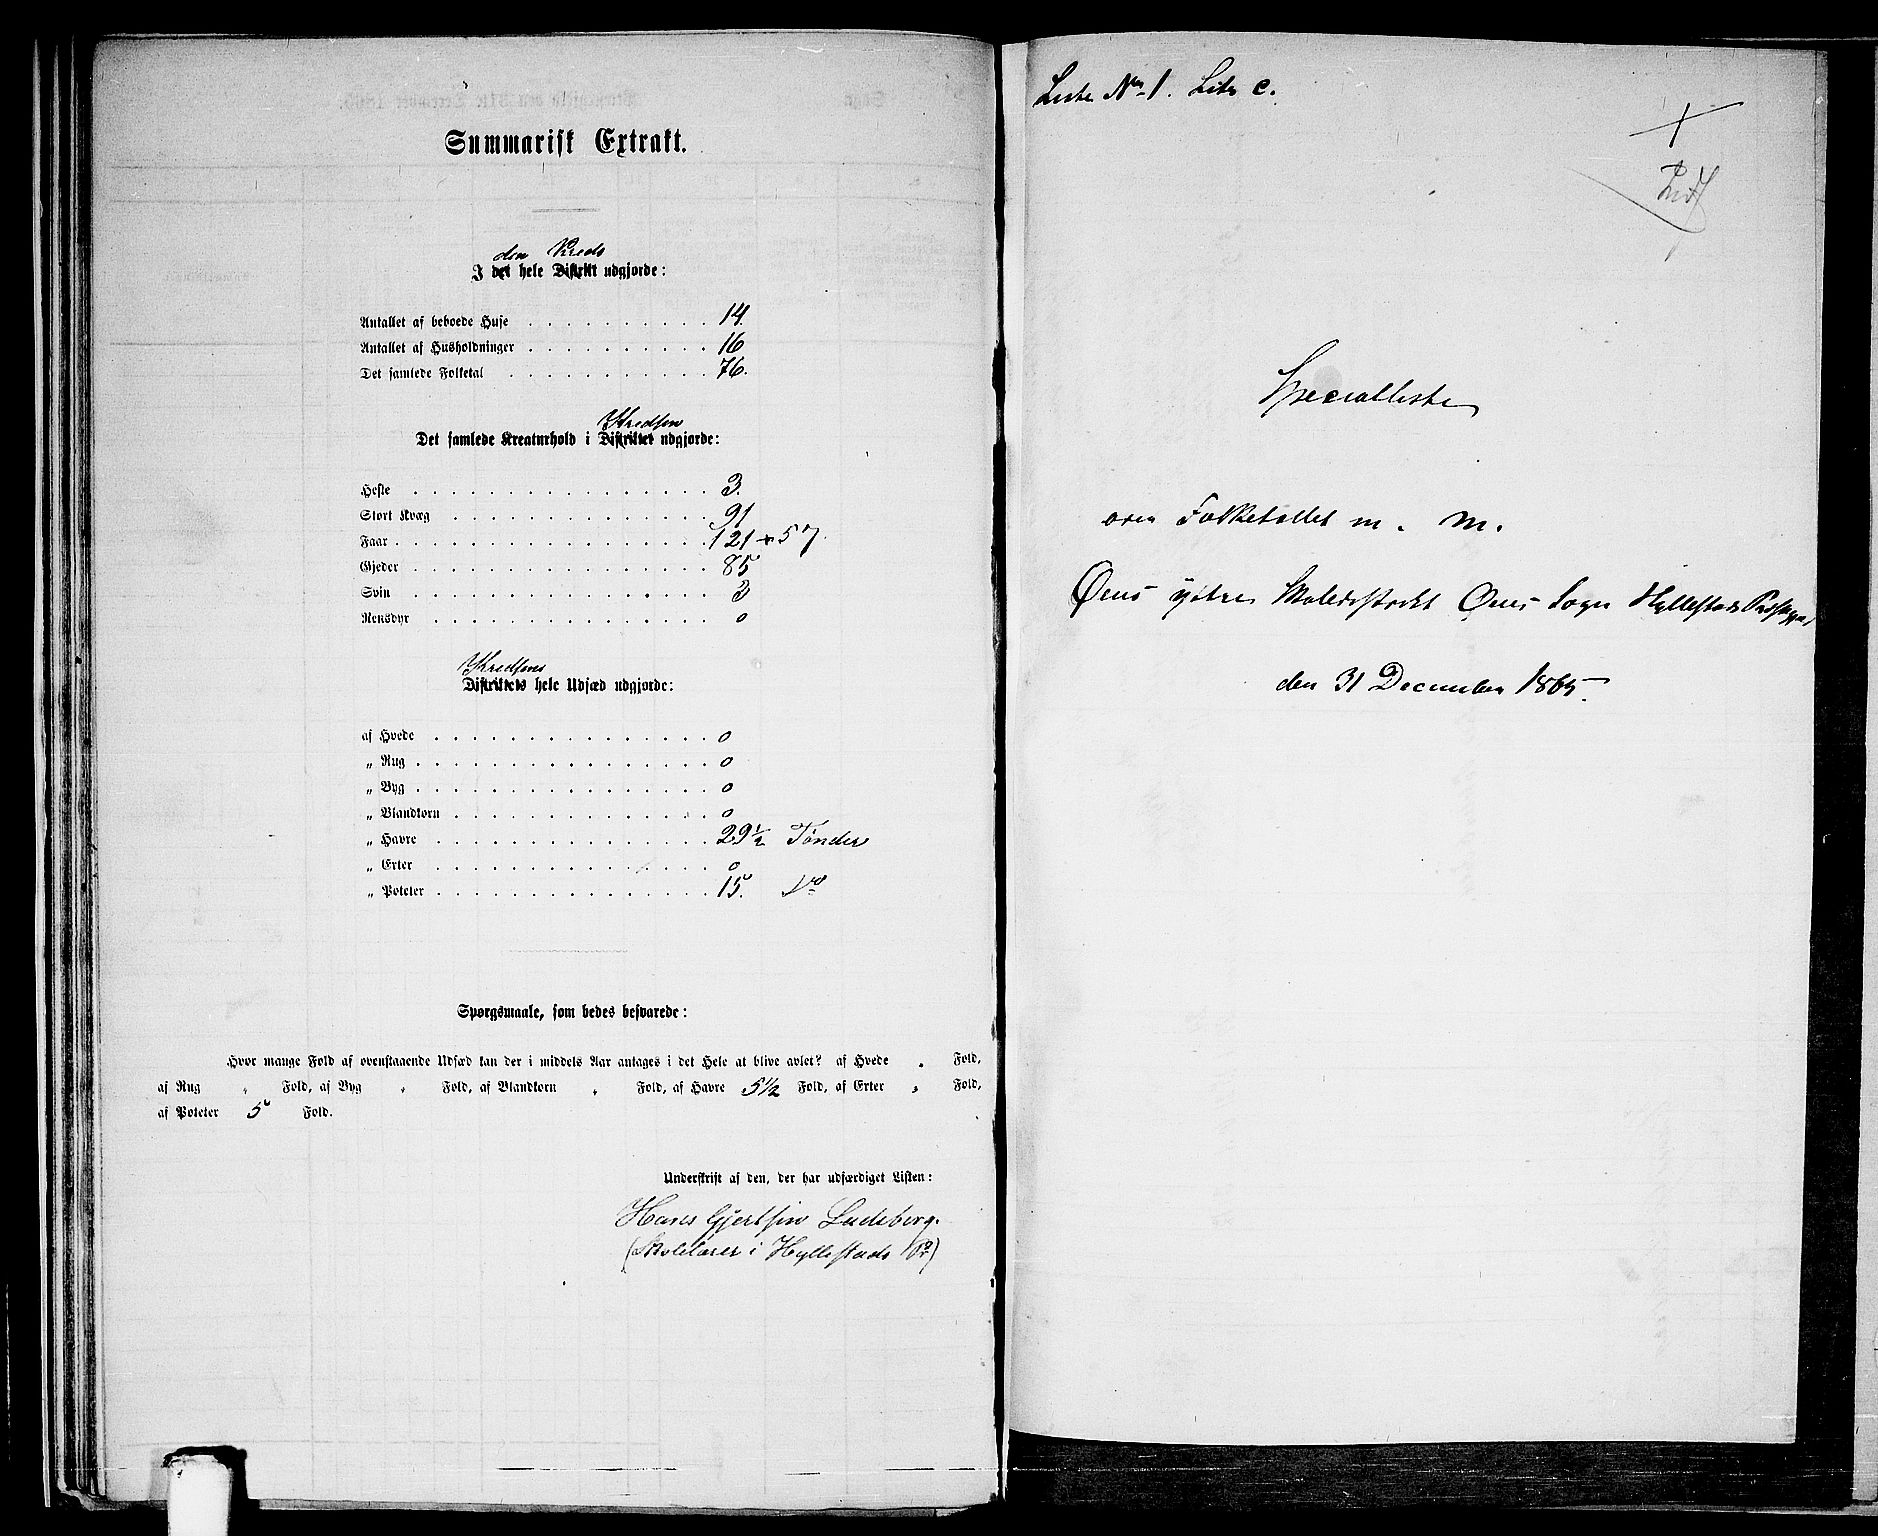 Summarisk Extrakt.
den Kreds
I det hele Distrikt udgjorde:
Antallet af beboede Huse . . . . . . . . . . 14.
Antallet af Husholdninger . . . . . . . . . . 16
Det samlede Folketal . . . . . . . . . . . 76.
Kredsen
Det samlede Kreaturhold i Distriktet udgjorde:
Heste . . . . . . . . . . . . . . . . 3.
Stort Kvæg . . . . . . . . . . . . . . 91
Faar . . . . . . . . . . . . . . . . . 121 + 57.
Gjeder . . . . . . . . . . . . . . . . 85
Svin . . . . . . . . . . . . . . . . . 3
Rensdyr . . . . . . . . . . . . . . . 0
Kredsens
Distriktets hele Udsæd udgjorde:
af Hvede . . . . . . . . . . . . . . . 0
„ Rug . . . . . . . . . . . . . . . . 0
„ Byg . . . . . . . . . . . . . . . . 0
„ Blandkorn . . . . . . . . . . . . . . 0
„ Havre . . . . . . . . . . . . . . . 29½ Tønder
„ Erter . . . . . . . . . . . . . . . 0
„ Poteter . . . . . . . . . . . . . . . 15. do
Spørgsmaale, som bedes besvarede:
Hvor mange Fold af ovenstaaende Udsæd kan der i middels Aar antages i det Hele at blive avlet? af Hvede „ Fold,
af Rug „ Fold, af Byg „ Fold, af Blandkorn „ Fold, af Havre 5½ Fold, af Erter „ Fold,
af Poteter 5 Fold.
Underskrift af den, der har udfærdiget Listen:
Hans Gjertsen Ladeberg.
(Skolelærer i Hyllestads Pr)
Liste No 1. Litr C.
Specialliste
over Folketallet m. m.
Øens ytre Skoledistrikt Øens Sogn Hyllestads Præstegj.
den 31 December 1865.